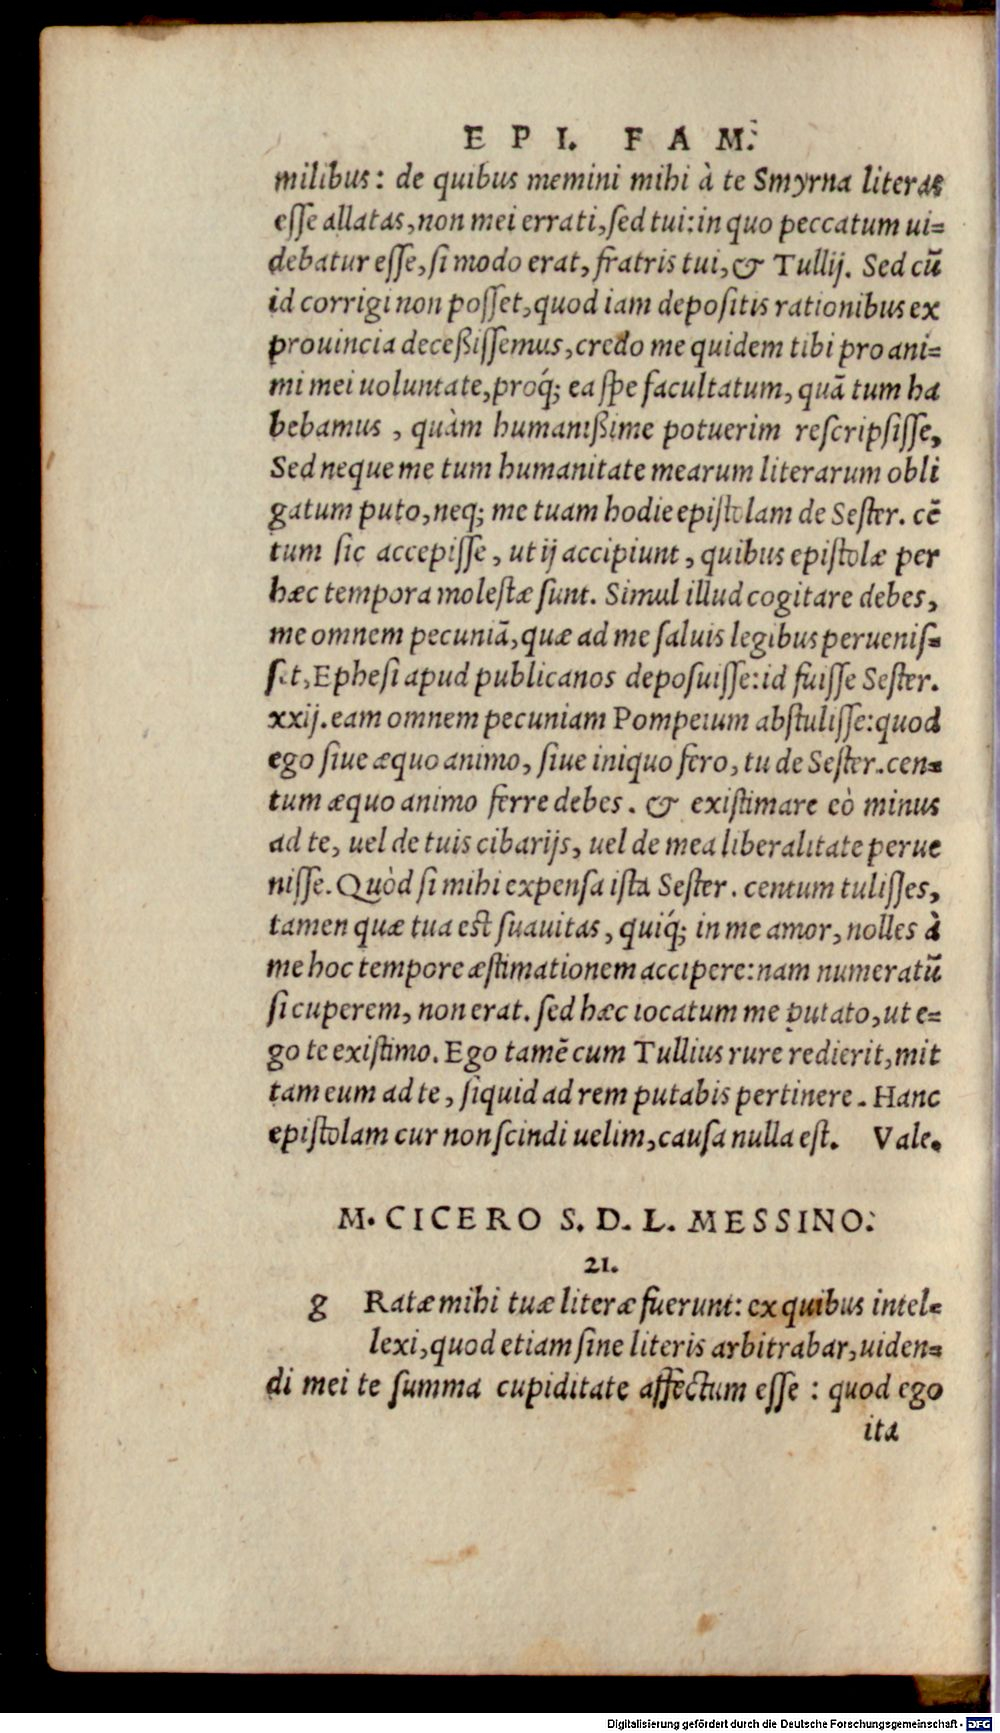 EPI. FAM.
milibus: de quibus memini mihi à te Smyrna literas
esse allatas, non mei errati, sed tui: in quo peccatum ui=
debatur esse, si modo erat, fratris tui, & Tullij. Sed cū
id corrigi non posset, quod iam depositis rationibus ex
prouincia deceßissemus, credo me quidem tibi pro ani=
mi mei uoluntate, proq́; ea spe facultatum, quā tum ha
bebamus, quàm humanißime potuerim rescripsisse,
Sed neque me tum humanitate mearum literarum obli
gatum puto, neq; me tuam hodie epistolam de Sester. cē
tum sic accepisse, ut ij accipiunt, quibus epistolæ per
hæc tempora molestæ sunt. Simul illud cogitare debes,
me omnem pecuniā, quæ ad me saluis legibus peruenis=
set, Ephesi apud publicanos deposuisse: id fuisse Sester.
xxij. eam omnem pecuniam Pompeium abstulisse: quod
ego siue æquo animo, siue iniquo fero, tu de Sester. cen=
tum æquo animo ferre debes. & existimare eò minus
ad te, uel de tuis cibarijs, uel de mea liberalitate perue
nisse. Quòd si mihi expensa ista Sester. centum tulisses,
tamen quæ tua est suauitas, quiq́; in me amor, nolles à
me hoc tempore æstimationem accipere: nam numeratū
si cuperem, non erat. sed hæc iocatum me putato, ut e=
go te existimo. Ego tamē cum Tullius rure redierit, mit
tam eum ad te, siquid ad rem putabis pertinere. Hanc
epistolam cur non scindi uelim, causa nulla est. Vale.
M. CICERO S. D. L. MESSINO.
21.
g Ratæ mihi tuæ literæ fuerunt: ex quibus intel=
lexi, quod etiam sine literis arbitrabar, uiden=
di mei te summa cupiditate affectum esse: quod ego
ita
Digitalisierung gefördert durch die Deutsche Forschungsgemeinschaft - DFG